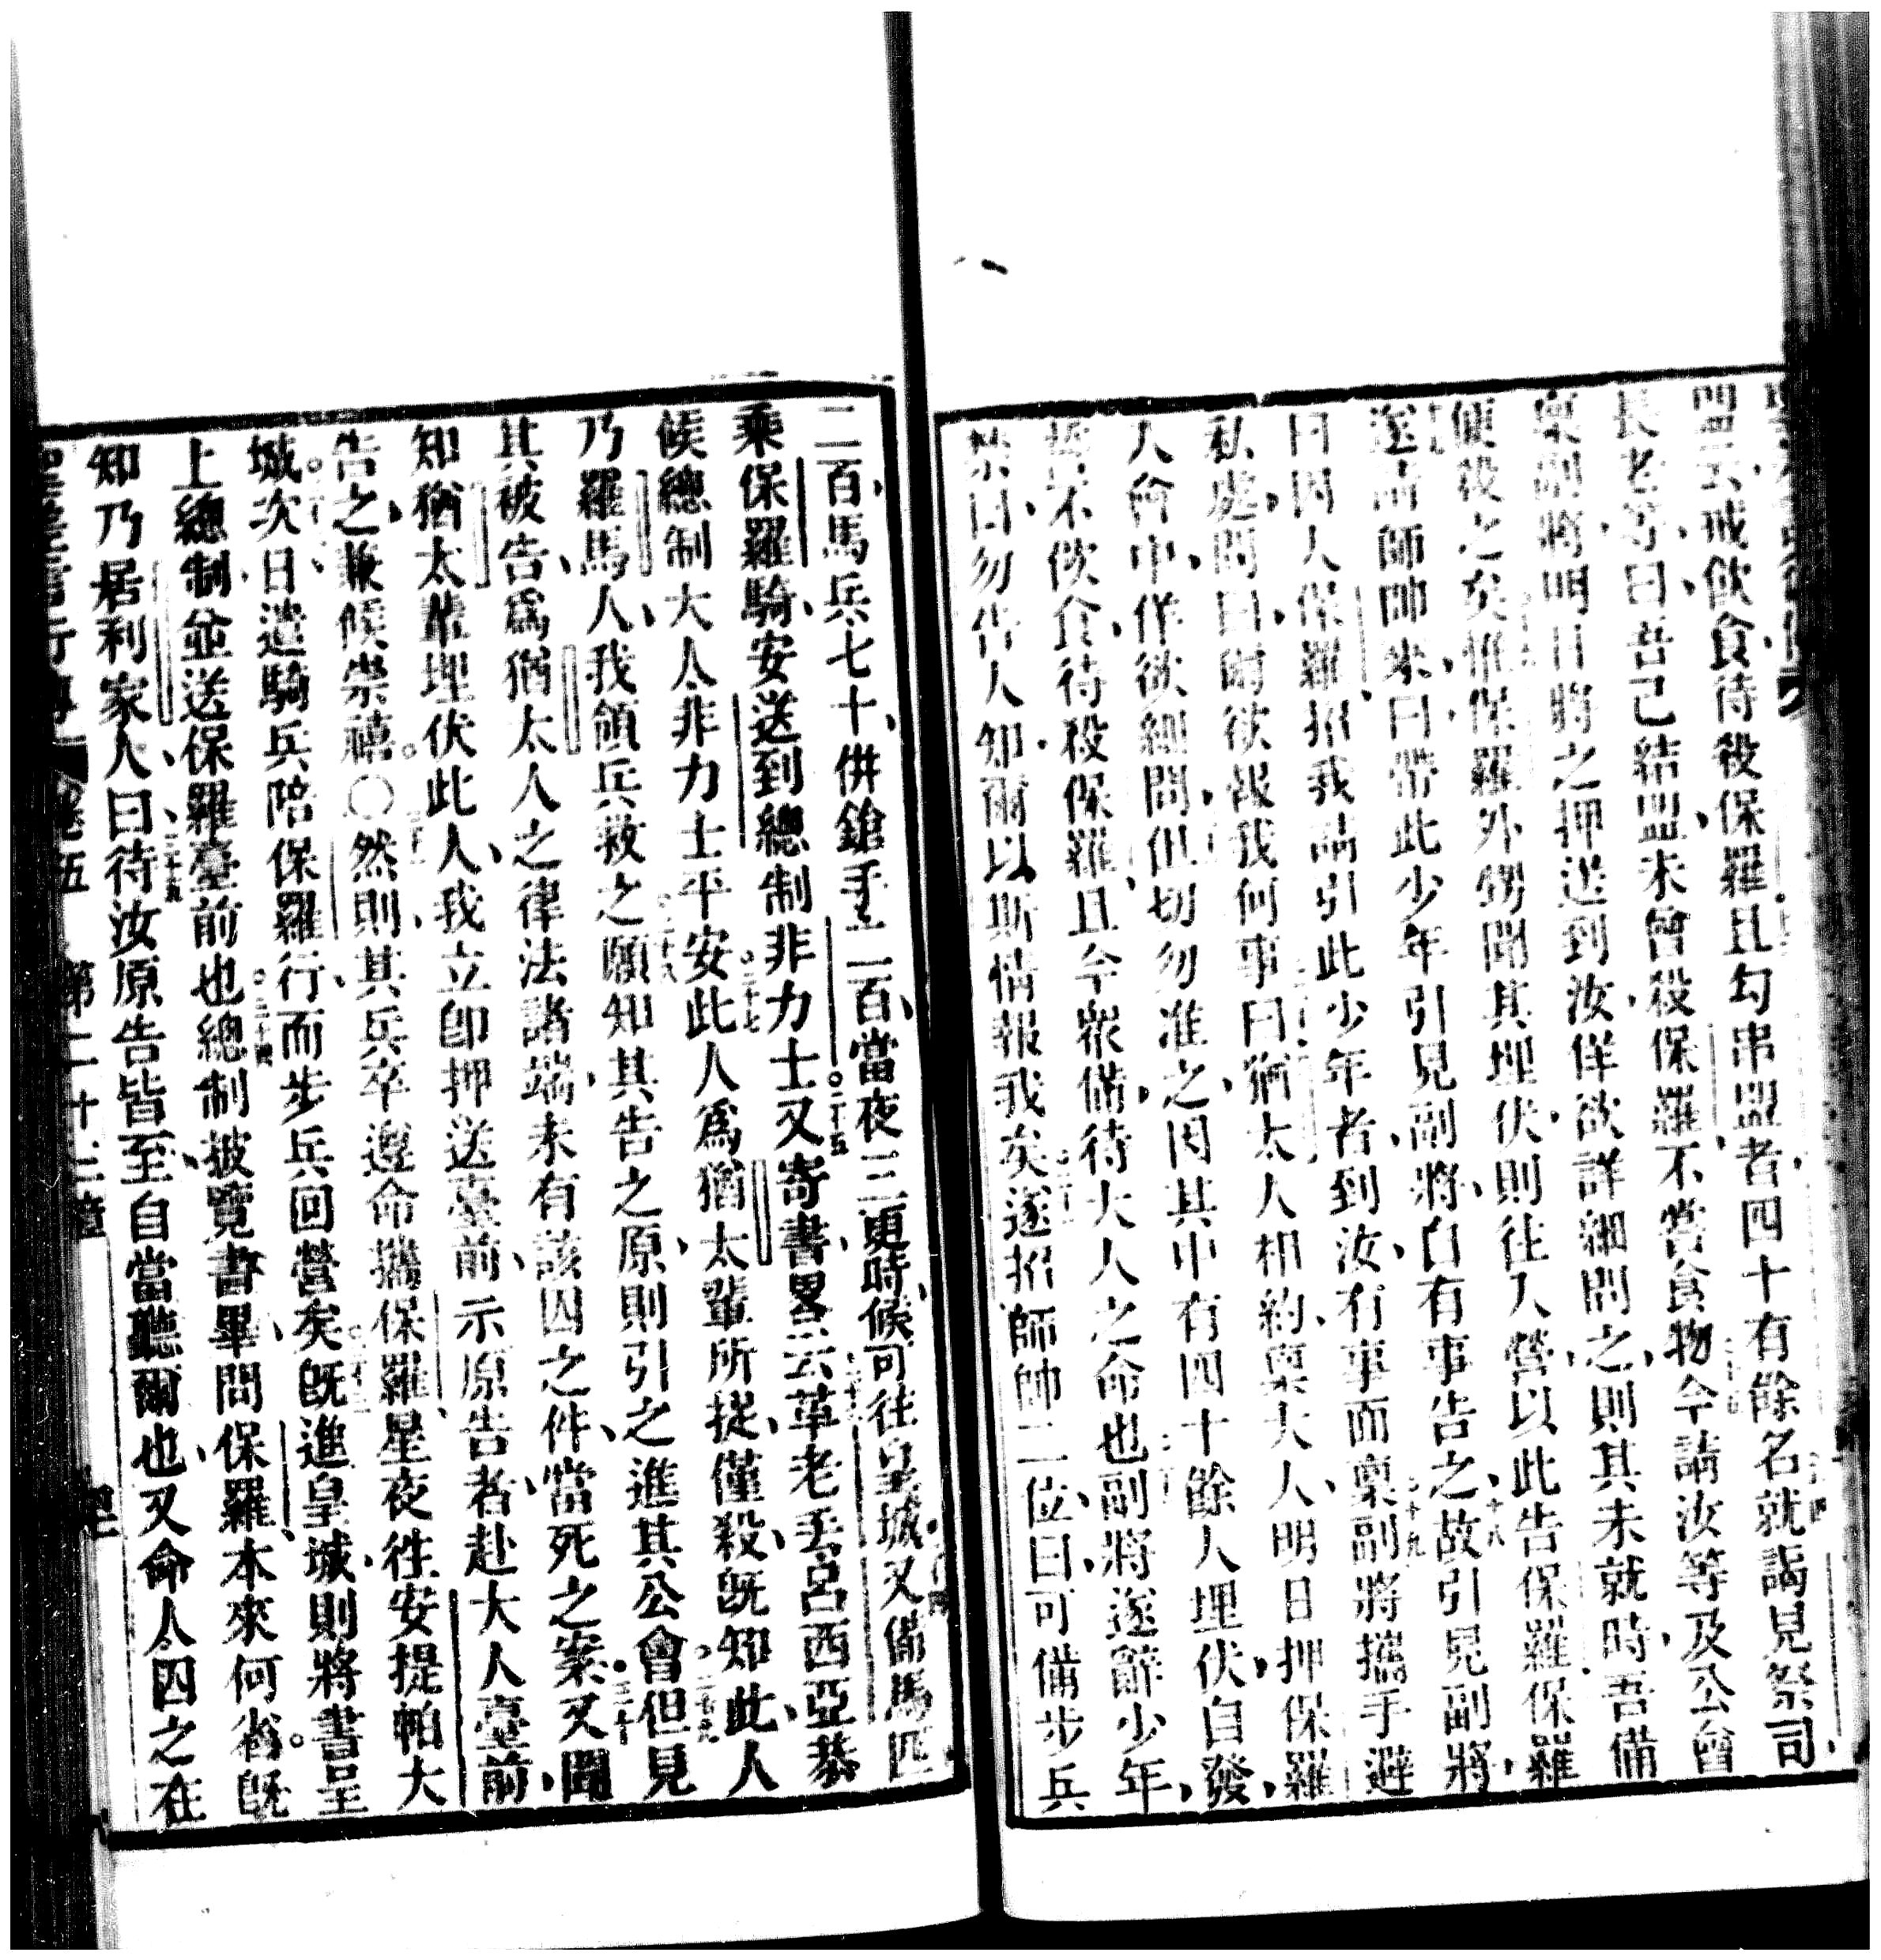 盟云戒飲食待殺保羅且勾串盟者四十有餘名就謁見祭司
長老等曰吾已結盟未曾殺保羅不嘗食物今請汝等及公會
稟副將明日將之押送到汝佯欲詳細問之則其未就時吾備
便殺之矣惟保羅外甥聞其埋伏則往入營以此告保羅保羅
遂請師帥來曰帶此少年引見副將自有事告之故引見副將
曰因人保羅招我請引此少年者到汝有事而稟副將攜手避
私處問曰爾欲報我何事曰猶太人相約稟大人明日押保羅
入會中佯欲細問但切勿准之因其中有四十餘人埋伏自發
誓不飲食待殺保羅且今眾備待大人之命也副將遂辭少年
禁曰勿告人知爾以斯情報我矣遂招師帥二位曰可備步兵
二百馬兵七十併鎗手二百當夜三更時候可往皇城又備馬匹
乘保羅騎安送到總制非力士又寄書畧云革老丟呂西亞恭
候總制大人非力士平安此人為猶太輩所捉僅殺既知此人
乃羅馬人我領兵救之願知其告之原則引之進其公會但見
其被告為猶太人之律法諸端未有該囚之件當死之案又聞
知猶太輩埋伏此人我立即押送臺前示原告者赴大人臺前
告之兼候崇禧〇然則其兵卒遵命攜保羅星夜徃安提帕大
城次日遣騎兵陪保羅行而步兵回營矣既進皇城則將書呈
上總制並送保羅臺前也總制披覽書畢問保羅本來何省既
知乃居利家人曰待汝原告皆至自當聽爾也又命人囚之在
行傳 卷五 第二十三章